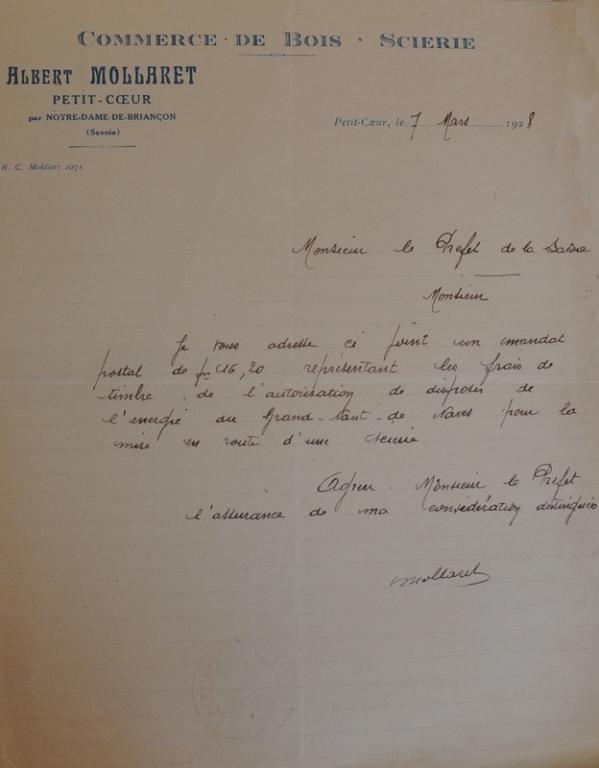 COMMERCE · DE BOIS · SCIERIE
ALBERT MOLLARET
PETIT-CŒUR
par NOTRE-DAME-DE-BRIANÇON
(Savoie)
R. C. Moûtiers 1071
Petit-Cœur, le 7 Mars 1928
Monsieur le Préfet de la Savoie
Monsieur
Je vous adresse ci joint un mandat
postal de 46,20 représentant les frais de
timbre de l'autorisation de disposer de
l'energie du Grand-Saut-de Naves pour la
mise en route d'une scierie
Agreer Monsieur le Prefet
l'assurance de ma considération distinguée
Mollaret